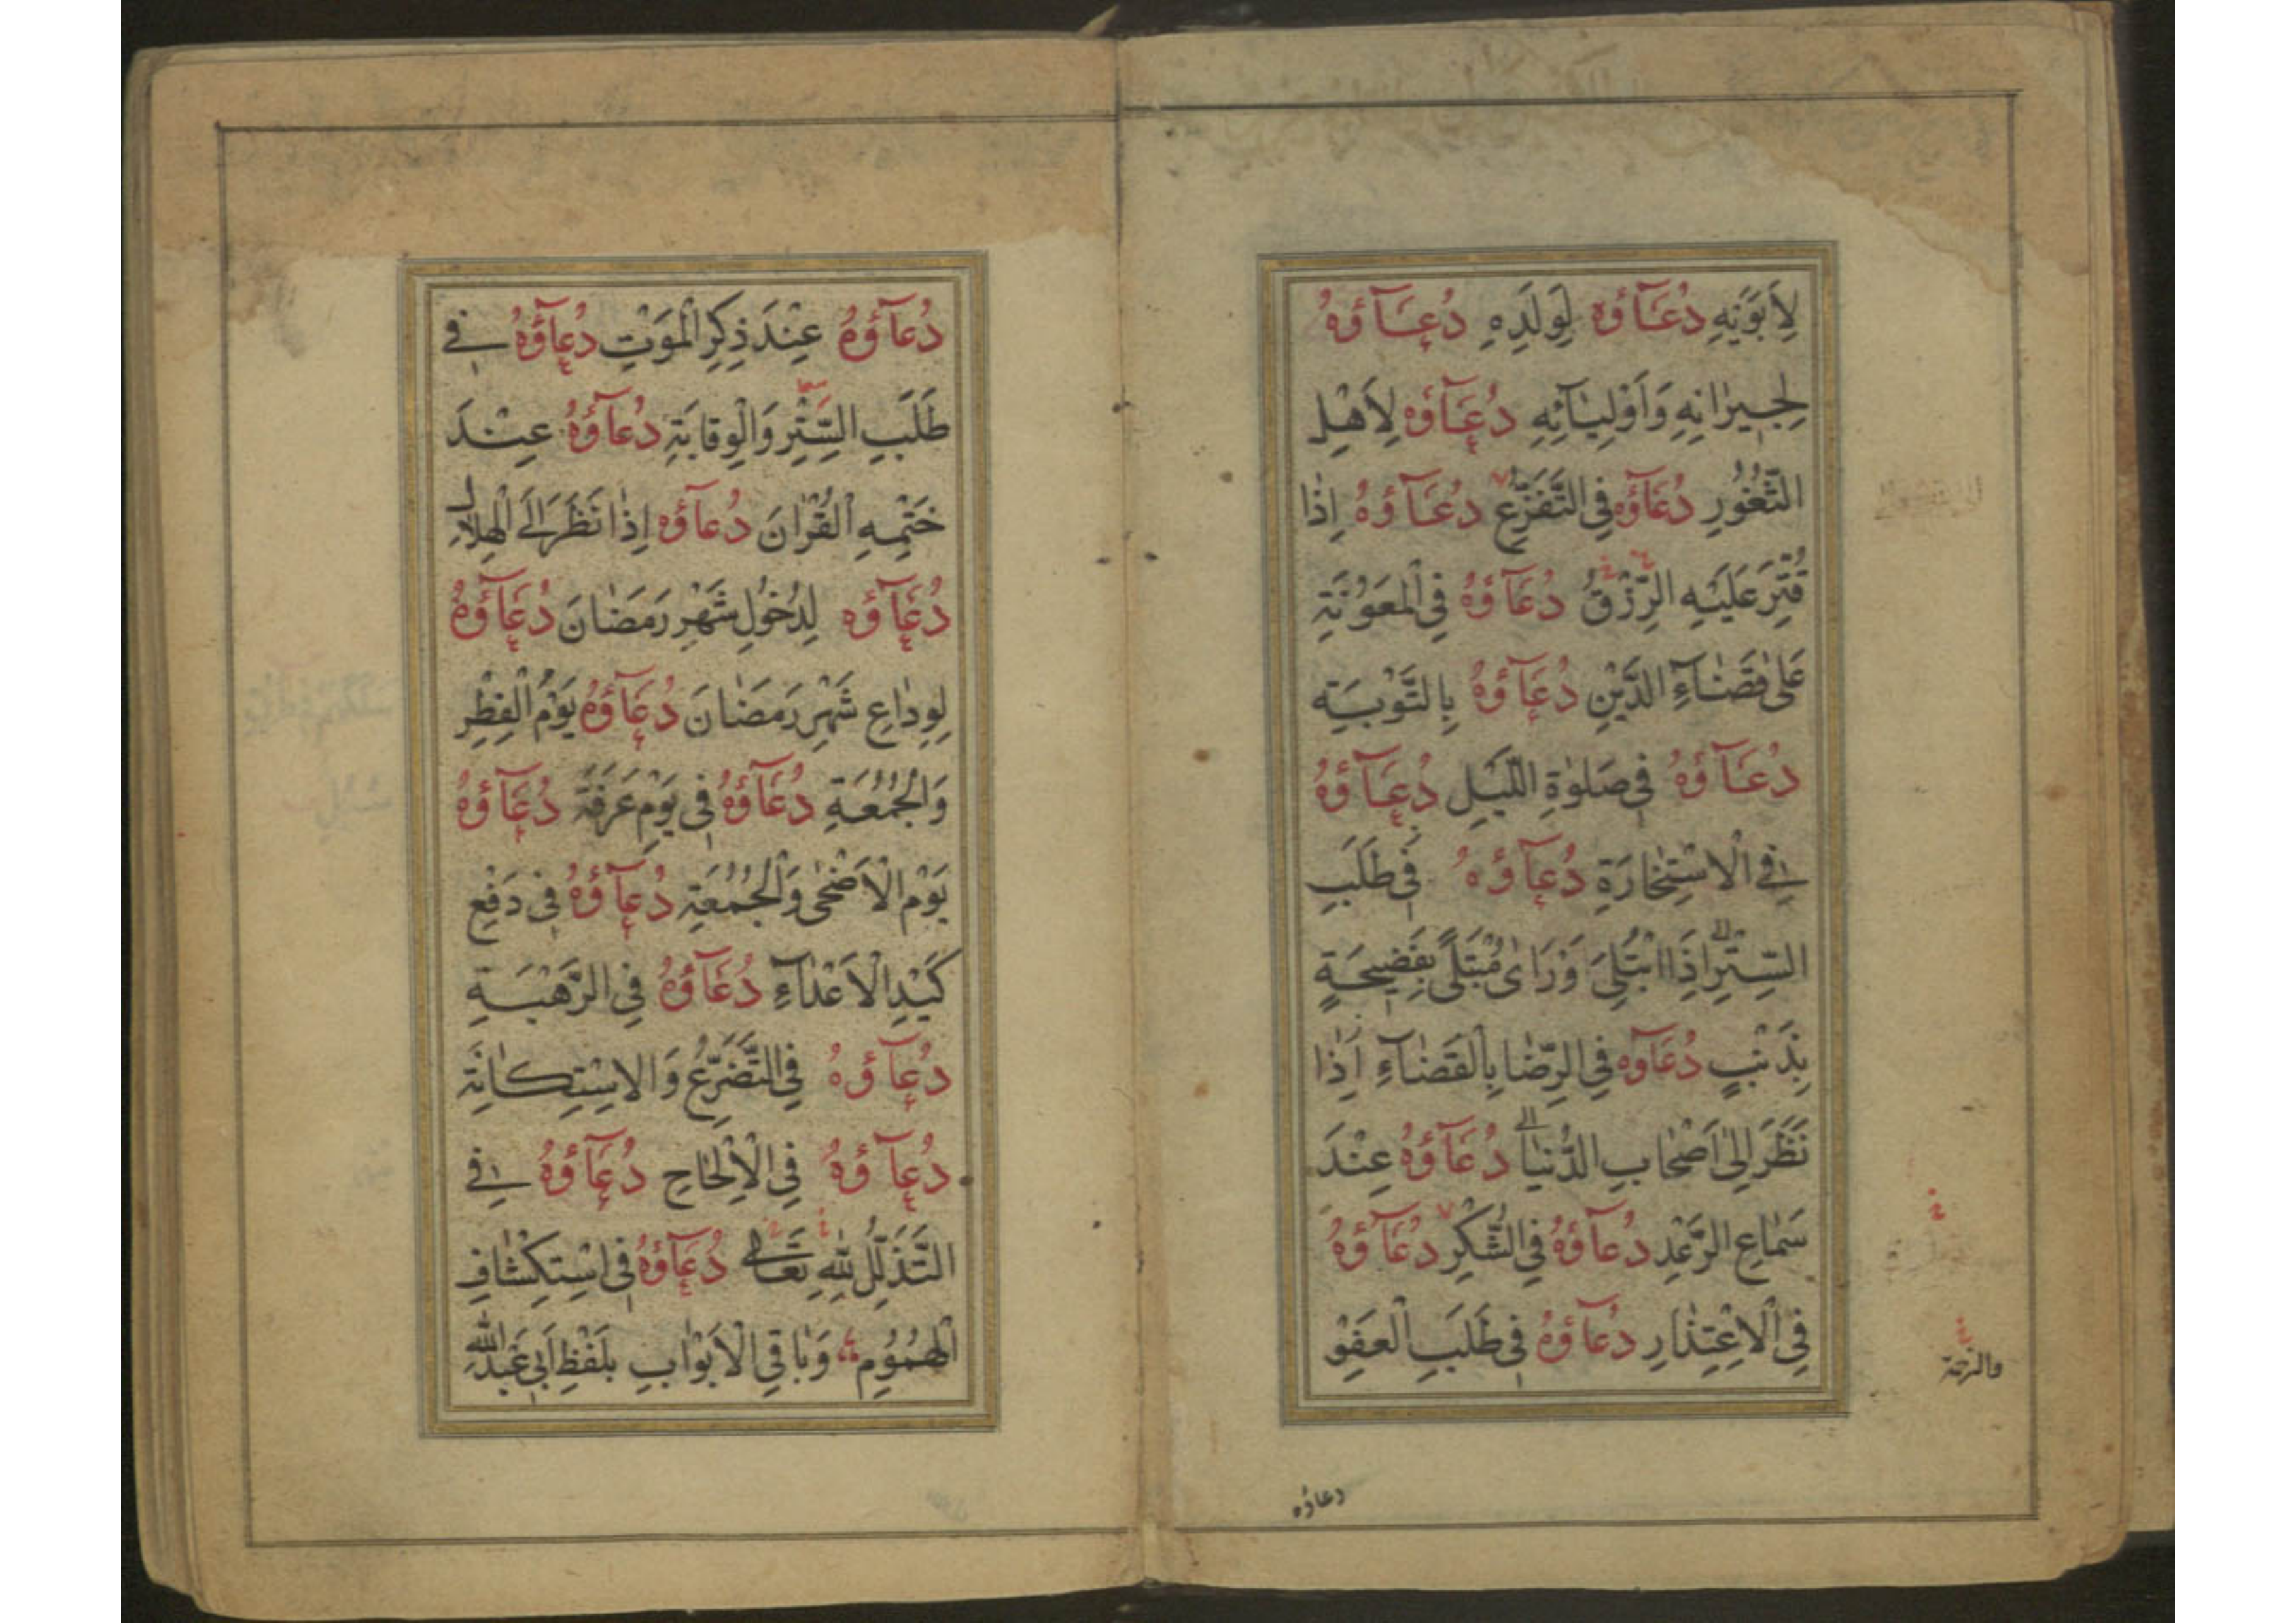 لِأَبَوَيْهِ دُعَآؤُهُ لِوَلَدِهِ دُعَآؤُهُ
لِجِيرٰانِهِ وَاَوْلِيٰآئِهِ دُعَآؤُهُ لِاَهْلِ
الثُّغُورِ دُعَآؤُهُ فِى التَّفَزُّعِ دُعَآؤُهُ اِذٰا
قُتِّرَ عَلَيْهِ الرِّزْقُ دُعَآؤُهُ فِى الْمَعُونَةِ
عَلىٰ قَضٰآءِ الدَّيْنِ دُعَآؤُهُ بِالتَّوْبَةِ
دُعَآؤُهُ فِى صَلوٰةِ اللَّيْلِ دُعَآؤُهُ
فِى الْاِسْتِخٰارَةِ دُعَآؤُهُ فِى طَلَبِ
السِّتْرِ اِذَا ابْتُلِىَ وَرَاىٰ مُبْتَلًى بِفَضِيحَةٍ
بِذَنْبٍ دُعَآؤُهُ فِى الرِّضٰا بِالْقَضٰآءِ اِذٰا
نَظَرَ اِلىٰ اَصْحٰابِ الدُّنْيٰا دُعَآؤُهُ عِنْدَ
سَمٰاعِ الرَّعْدِ دُعَآؤُهُ فِى الشُّكْرِ دُعَآؤُهُ
فِى الْاِعْتِذٰارِ دُعَآؤُهُ فِى طَلَبِ الْعَفْوِ
والرحمة
دعاؤه
دُعَآؤُهُ عِنْدَ ذِكْرِ الْمَوْتِ دُعَآؤُهُ فِى
طَلَبِ السِّتْرِ وَالْوِقَايَةِ دُعَآؤُهُ عِنْدَ
خَتْمِهِ الْقُرْاٰنَ دُعَآؤُهُ اِذٰا نَظَرَ اِلَى الْهِلٰالِ
دُعَآؤُهُ لِدُخُولِ شَهْرِ رَمَضٰانَ دُعَآؤُهُ
لِوِدٰاعِ شَهْرِ رَمَضٰانَ دُعَآؤُهُ يَوْمَ الْفِطْرِ
وَالْجُمُعَةِ دُعَآؤُهُ فِى يَوْمِ عَرَفَةَ دُعَآؤُهُ
يَوْمَ الْاَضْحٰى وَالْجُمُعَةِ دُعَآؤُهُ فِى دَفْعِ
كَيْدِ الْاَعْدٰآءِ دُعَآؤُهُ فِى الرَّهْبَةِ
دُعَآؤُهُ فِى التَّضَرُّعِ وَالاِسْتِكٰانَةِ
دُعَآؤُهُ فِى الْاِلْحٰاحِ دُعَآؤُهُ فِى
التَّذَلُّلِ لِلّٰهِ تَعَالٰى دُعَآؤُهُ فِى اسْتِكْشٰافِ
الْهُمُومِ وَبٰاقِى الْاَبْوٰابِ بِلَفْظِ اَبِى عَبْدِ اللّٰهِ